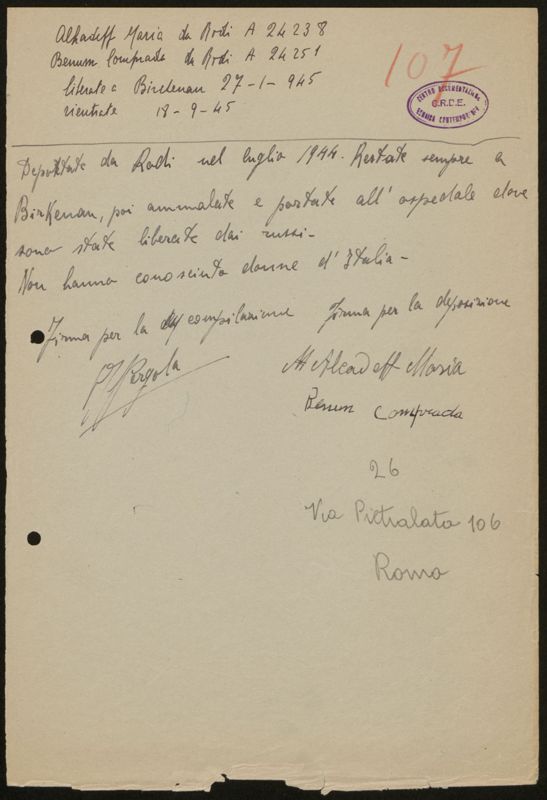 Alhadeff Maria da Rodi A 24238
Benun Comprada da Rodi A 24251
liberate a Birckenau 27-1-945
rientrate 18-9-45
107
CENTRO DOCUMENTAZIONE
C.R.D.E.
EBRAICA CONTEMPORANEA
Deportate da Rodi nel luglio 1944. Restate sempre a
Birkenau, poi ammalate e portate all'ospedale dove
sono state liberate dai russi-
Non hanno conosciuto donne d'Italia-
Firma per la compilazione Firma per la deposizione
Pergola M Alcadeff Maria
Benun Comprada
26
Via Pietralata 106
Roma